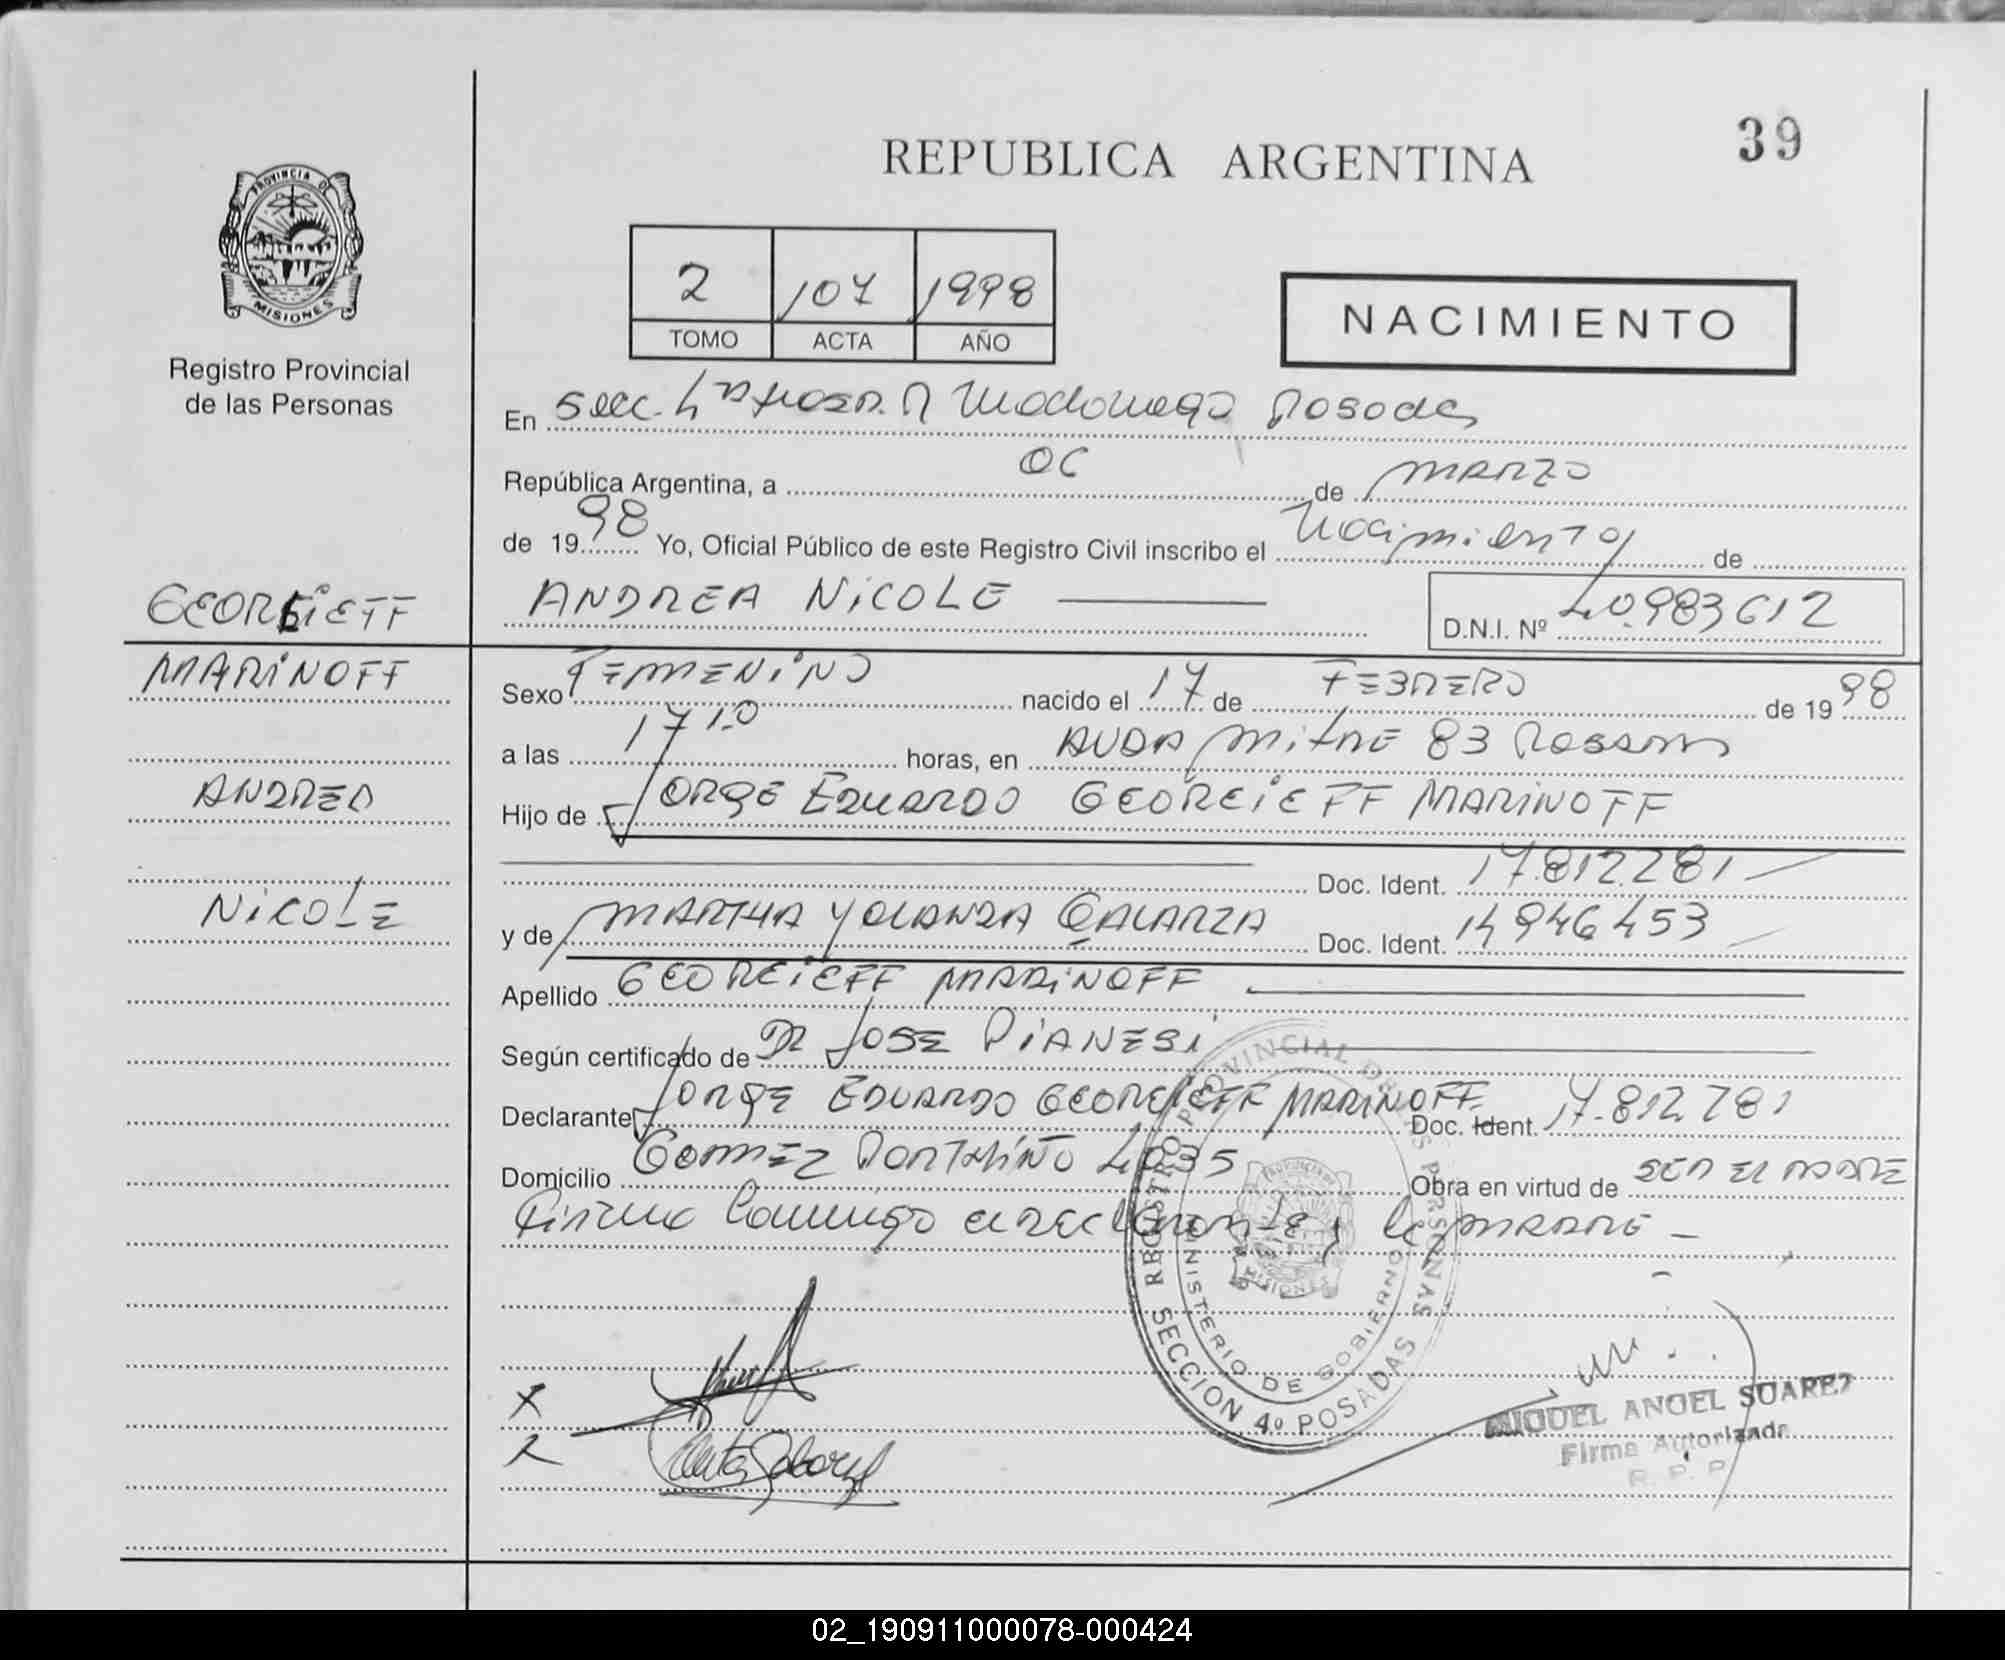 39
REPUBLICA ARGENTINA
PROVINCIA DE
MISIONES
Registro Provincial
de las Personas
2 107 1998
TOMO ACTA AÑO
NACIMIENTO
En Secc. 4ta Posadas
República Argentina, a 06 de MARZO
de 1998 Yo, Oficial Público de este Registro Civil inscribo el Nacimiento de
GEORGIEFF
ANDREA NICOLE
D.N.I. Nº 40.983612
MARINOFF
Sexo FEMENINO nacido el 17 de FEBRERO de 1998
a las 1710 horas, en AVDA MITRE 83 Posadas
ANDREA
Hijo de JORGE EDUARDO GEORGIEFF MARINOFF
Doc. Ident. 17.812.281
NICOLE
y de MARTHA YOLANDA GALARZA Doc. Ident. 14946453
Apellido GEORGIEFF MARINOFF
Según certificado de DR JOSE PIANESI
Declarante JORGE EDUARDO GEORGIEFF MARINOFF Doc. Ident. 17.812.781
Domicilio GOMEZ PORTIÑO 4035 Obra en virtud de SER EL PADRE
Firma Conmigo el declarante y la MADRE
REGISTRO PROVINCIAL DE LAS PERSONAS
MINISTERIO DE GOBIERNO
SECCION 4º POSADAS
MIGUEL ANGEL SUAREZ
Firma Autorizada
R. P. P.
02_190911000078-000424